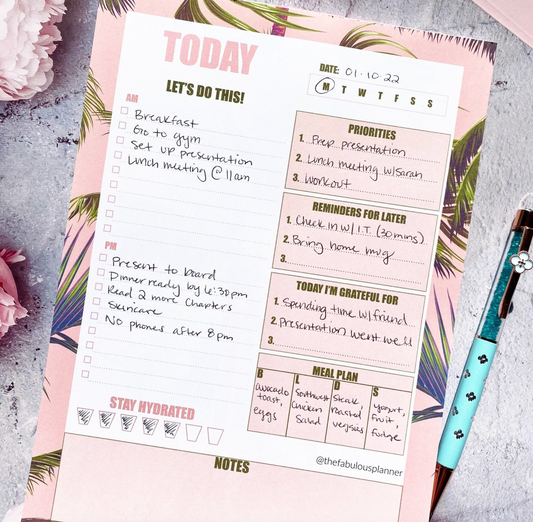 TODAY
LET'S DO THIS!
AM
Breakfast
Go to gym
Set up presentation
Lunch meeting @ 11am
PM
Present to board
Dinner ready by 6:30pm
Read 2 more Chapters
Skincare
No phones after 8pm
STAY HYDRATED
DATE: 01-10-22
M T W T F S S
PRIORITIES
1. Prep presentation
2. Lunch meeting w/Sarah
3. Workout
REMINDERS FOR LATER
1. Check in w/ I.T. (30 mins)
2. Bring home mug
3.
TODAY I'M GRATEFUL FOR
1. Spending time w/friend
2. Presentation went well
3.
MEAL PLAN
B
avocado
toast,
eggs
L
Southwest
Chicken
Salad
D
Steak
roasted
veggies
S
yogurt,
fruit,
fudge
@thefabulousplanner
NOTES